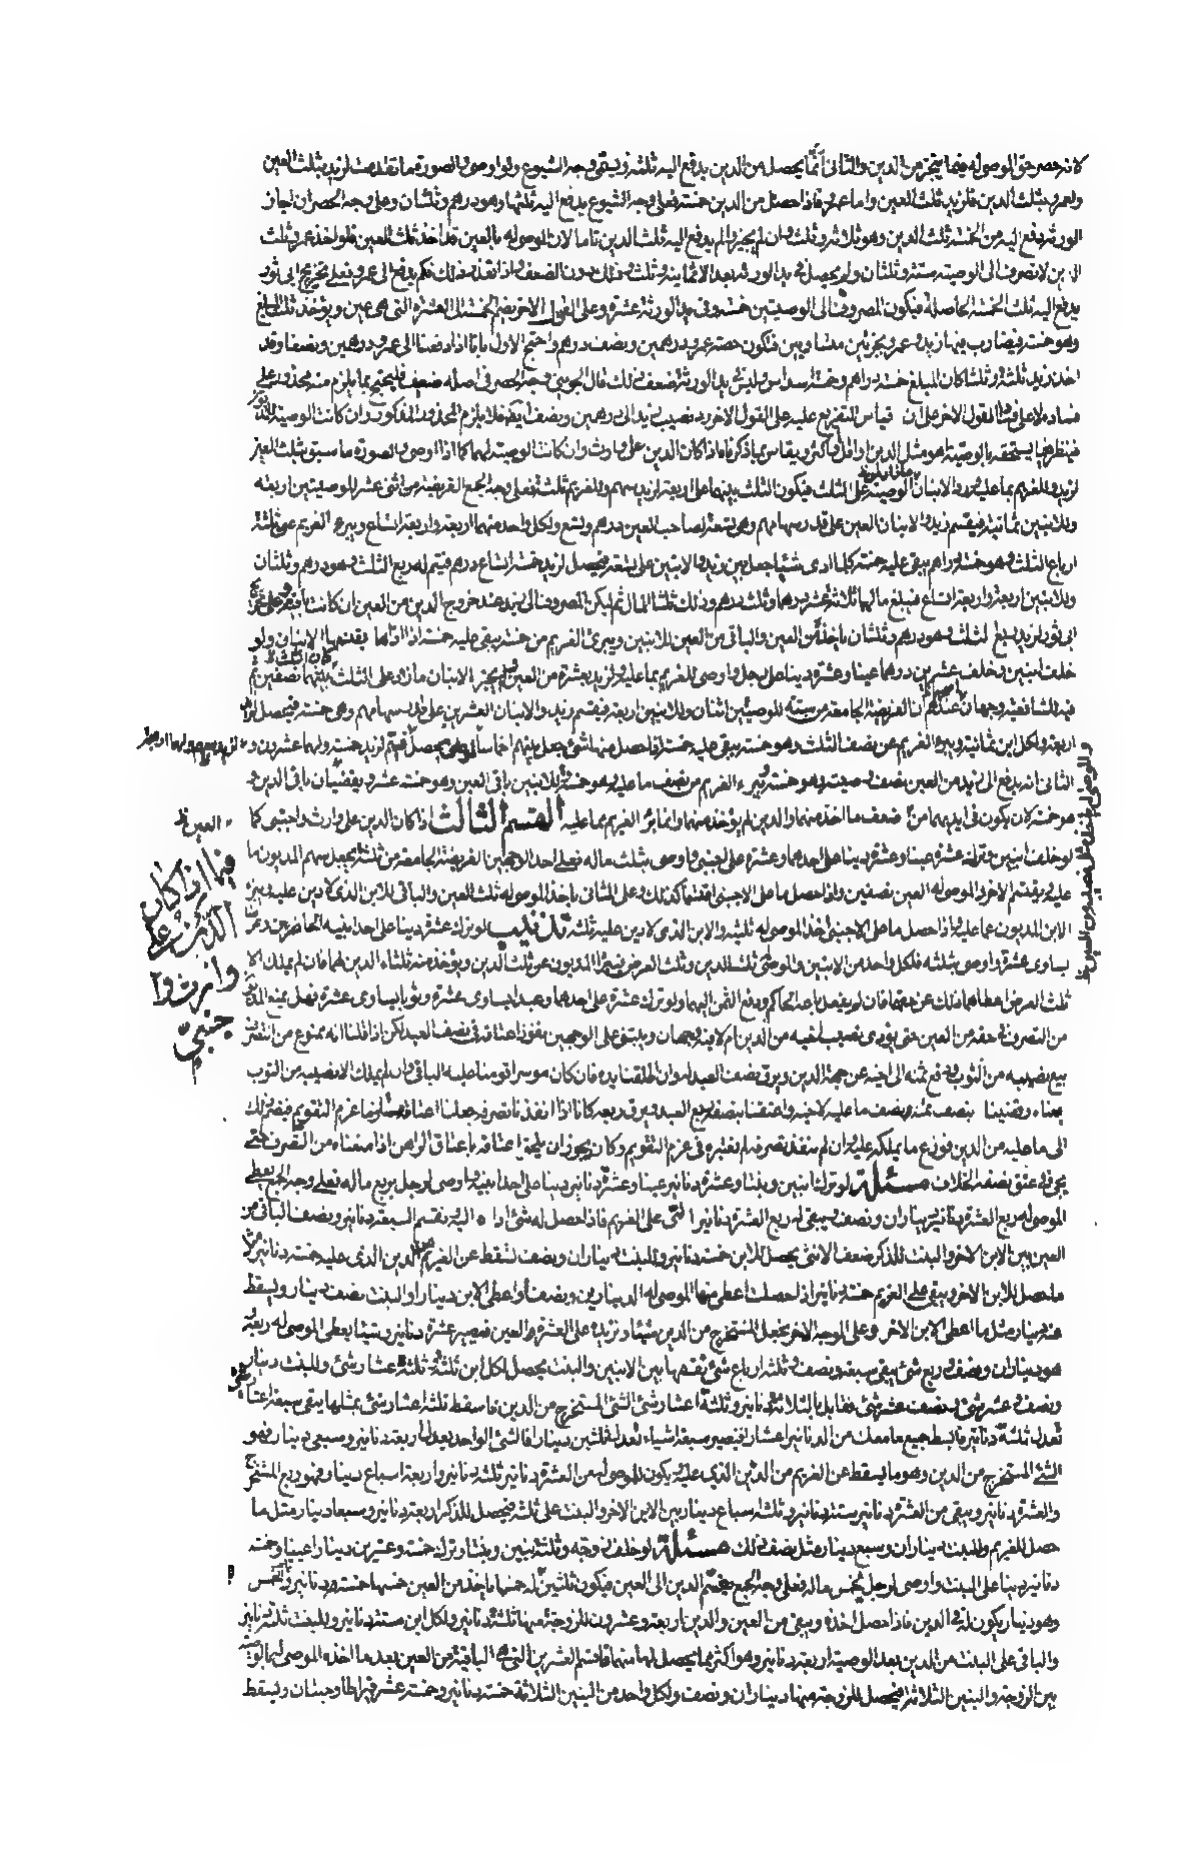 كانه حصر حق الموصى له فيما ينجز من الدين والثاني أنما يحصل من الدين يدفع اليه ثلثه ويبقى وجه الشيوع ولو اوصى والصورة ما تقدمت لزيد بثلث العين
ولعمرو بثلث الدين فلزيد ثلث العين واما عمرو فاذا حصل من الدين خمسة فعلى وجه الشيوع يدفع اليه ثلثها وهو درهم وثلثان وعلى وجه الحصر ان اجاز
الورثة دفع اليه من الخمسة ثلث الدين وهو ثلثه وثلث وان لم يجيزوا لم يدفع اليه ثلث الدين تاما لان الموصى له بالعين قد اخذ ثلث العين فلو اخذ عمرو ثلث
الدين لانصرف الى الوصية ستة وثلثان ولم يحصل في يد الورثة بعد الا ثمانية وثلث وذلك دون الضعف واذا تعذر ذلك فكم يدفع الى عمرو فعلى تخريج ابي ثور
يدفع اليه ثلث الخمسة الحاصلة فيكون المصروف الى الوصيتين خمسة وفي يد الورثة عشرة وعلى القول الاخر يضم الخمسة الى العشرة التي هي عين ويؤخذ ثلث المبلغ
وهو خمسة فيضارب فيها زيد وعمرو بجزئين متساويين فتكون حصة عمرو درهمين ونصف درهم واحتج الاول بانا اذا دفعنا الى عمرو درهمين ونصفا وقد
اخذ زيد ثلثة وثلثا كان المبلغ خمسة دراهم وخمسة اسداس وليس في يد الورثة ضعف ذلك قال الجويني وجه الحصر في اصله ضعيف فليحتج بما يلزم منه محذور على
فساده لا على فساد القول الاخر على ان قياس التفريع عليه على القول الاخر يرد نصيب زيد الى درهمين ونصف ايضا فلا يلزم المحذور المذكور وان كانت الوصية للمديون
فينظر فيما يستحقه بالوصية اهو مثل الدين او اقل او اكثر ويقاس بما ذكرناه اذا كان الدين على وارث وان كانت الوصية لهما كما اذا اوصى والصورة ما سبق بثلث العين
لزيد وللغريم بما عليه ورد الابنان الوصية على الثلث فيكون الثلث بينهما على اربعة لزيد سهم وللغريم ثلثة فعلى وجه الجمع الفريضة من اثنى عشر للوصيتين اربعة
وللابنين ثمانية فيقسم زيد والابنان العين على قدر سهامهم وهي تسعة لصاحب العين درهم وتسع ولكل واحد منهما اربعة واربعة اتساع ويبرء الغريم عن ثلثة
ارباع الثلث وهو خمسة دراهم يبقى عليه خمسة كلما ادى شيئا جعل بين زيد والابنين على تسعة فيحصل لزيد خمسة اتساع درهم فيتم له ربع الثلث وهو درهم وثلثان
وللابنين اربعة واربعة اتساع فيبلغ مالهما ثلاثة عشر درهما وثلث درهم وذلك ثلثا المال ثم ليكن المصروف الى زيد عند خروج الدين من العين ان كانت باقية وعلى تخريج
ابي ثور لزيد ربع الثلث وهو درهم وثلثان ياخذه من العين والباقي من العين للابنين ويبرئ الغريم من خمسة يبقى عليه خمسة اذا اداها يقتسمها الابنان ولو
خلف ابنين وتخلف عشرين درهما عينا وعشرة دينا على رجل واوصى للغريم بما عليه ولزيد بعشرة من العين ولم يجيز الابنان ما زاد على الثلث كان الثلث بينهما نصفين ثم
فيه للشافعية وجهان عندهم ان الفريضة الجامعة من ستة للوصيتين اثنان وللابنين اربعة فيقسم زيد والابنان العشرين على سهامهم وهي خمسة فيحصل لزيد
اربعة ولكل ابن ثمانية ويبرء الغريم عن نصف الثلث وهو خمسة يبقى عليه خمسة اذا حصل منها شئ جعل بينهم اخماسا فيحصل فيتم لزيد خمسة ولهما عشرون و
الثاني انه يدفع الى زيد من العين نصف وصيته وهو خمسة ويبرء الغريم من نصف ما عليه وهو خمسة وللابنين باقي العين وهو خمسة عشر ويقتضيان باقي الدين و
هو خمسة كان يكون في ايديهما من ضعف ما اخذه منهما والدين لم يؤخذ منهما وانما برئ الغريم مما عليه القسم الثالث اذا كان الدين على وارث واجنبي كما
لو خلف ابنين وترك عشرة عينا وعشرة دينا على احدهما وعشرة على اجنبي واوصى بثلث ماله فعلى احد الوجهين الفريضة الجامعة من ثلثة يجعل سهم المديون ما
عليه ويقتسم الاخر والموصى له العين نصفين واذا حصل ما على الاجنبي اقتسما كذلك وعلى الثاني ياخذ الموصى له ثلث العين والباقي للابن الذي لا دين عليه ويبرء
الابن المديون عما عليه واذا حصل ما على الاجنبي اخذ الموصى له ثلثيه والابن الذي لا دين عليه ثلثه تذنيب لو ترك عشرة دينا على احد ابنيه الحاضرين وعرضا
يساوي عشرة واوصى بثلثه فلكل واحد من الابنين والموصى ثلث الدين وثلث العرض فيبرأ المديون عن ثلث الدين ويؤخذ منه ثلثاه الذين لهما فان لم يملك الا
ثلث العرض اعطاهما ذلك عن حقهما فان لم يفعل باعه الحاكم ودفع الثمن اليهما ولو ترك عشرة على احدهما وعبدا يساوي عشرة وثوبا يساوي عشرة فهل يمنع المديون
من التصرف في حقه من العين حتى يؤدي نصيب اخيه من الدين ام لا فيه وجهان ويبتنى على الوجهين نفوذ اعتاقه في نصف العبد لكن اذا قلنا انه ممنوع من التصرف
بيع نصيبه من الثوب ودفع ثمنه الى اخيه عن جهة الدين ويرق نصف العبد له وان اطلقنا يده فان كان موسرا قومنا عليه الباقي وان لم يملك الا نصيبه من الثوب
بعناه وقضينا بنصف ثمنه ونصف ما عليه لاخيه واعتقنا بنصفه ربع العبد ويرق ربعه كانا اذا انفذنا تصرفه جعلنا اعتاقه مستلزما غرم التقويم فيضم ذلك
الى ما عليه من الدين فوزع ما يملكه عليه وان لم ننفذ تصرفه لم نعتبره في غرم التقويم وكان يجوز ان يلحق اعتاقه باعتاق الراهن اذا منعناه من التصرف حتى
يجيء في عتق نصفه الخلاف مسئلة لو ترك ابنين وبنتا وعشرة دنانير عينا وعشرة دنانير دينا على احد ابنيه واوصى لرجل بربع ماله فعلى وجه الجمع يعطى
الموصى له ربع العشرة دنانير ديناران ونصف ويبقى له ربع العشرة دنانير التي على الغريم فاذا حصل له شئ اداه اليه ونقسم السبعة دنانير ونصف الباقي من
العين بين الابن الاخر والبنت للذكر ضعف الانثى يحصل للابن خمسة دنانير وللبنت ديناران ونصف تسقط عن الغريم من الدين الذي عليه خمسة دنانير مثل
ما حصل للابن الاخر ويبقى على الغريم خمسة دنانير اذا حصلت اعطى منها الموصى له الدينارين ونصف او اعطى الابن دينارا والبنت نصف دينار ويسقط
عنه دينار مثل ما اعطى الابن الاخر وعلى الوجه الاخر نجعل المستخرج من الدين شيئا ونزيده على العشرة العين فيصير عشرة دنانير وشيئا يعطى الموصى له ربعه
وهو ديناران ونصف وربع شئ يبقى سبعة ونصف وثلثة ارباع شئ نقسمها بين الابنين والبنت يحصل لكل ابن ثلثة وثلثة اعشار شئ وللبنت دينار
ونصف وعشر شئ ونصف عشر شئ فقابل بالثلاثة دنانير وثلثة اعشار شئ الشئ المستخرج من الدين فاسقط ثلثة اعشار شئ بمثلها يبقى سبعة اعشار
تعدل ثلثة دنانير فابسط جميع ما معك من الدنانير اعشارا فيصير سبعة اشياء تعدل ثلثين دينارا فالشئ الواحد يعدل اربعة دنانير وسبعي دينار وهو
الشئ المستخرج من الدين وهو ما يسقط عن الغريم من الدين الذي عليه ويكون للموصى له من العشرة دنانير ثلثة دنانير واربعة اسباع دينار وهو ربع المستخرج
والعشرة دنانير ويبقى من العشرة دنانير ستة دنانير وثلثة اسباع دينار بين الابن الاخر والبنت على ثلثة فيحصل للذكر اربعة دنانير وسبعا دينار مثل ما
حصل للغريم وللبنت ديناران وسبع دينار مثل نصف ذلك مسئلة لو خلف زوجة وثلثة بنين وبنتا وترك خمسة وعشرين دينارا عينا وخمسة
دنانير دينا على البنت واوصى لرجل بخمس ماله فعلى وجه الجمع يضم الدين الى العين فيكون ثلثين له خمسها ياخذ من العين خمسها خمسة دنانير والخمس
وهو دينار يكون له في الدين فاذا حصل اخذه ويبقى من العين والدين اربعة وعشرون للزوجة ثمنها ثلثة دنانير ولكل ابن ستة دنانير وللبنت ثلثة دنانير
والباقي على البنت من الدين بعد الوصية اربعة دنانير وهو اكثر مما يحصل لها منها فاقسم العشرين التي هي الباقية من العين بعد ما اخذه الموصى له بالوصية
بين الزوجة والبنين الثلاثة فيحصل للزوجة منها ديناران ونصف ولكل واحد من البنين الثلاثة خمسة دنانير وخمسة عشر قيراطا وحبتان ويسقط
العين
فما اذا كان
الدين على
وارث وا
جنبي